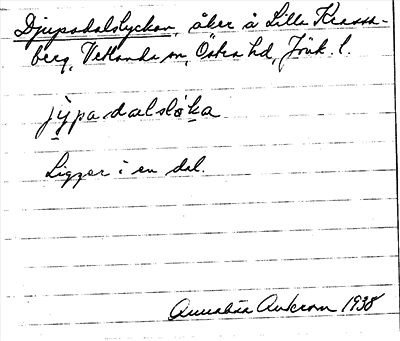 Djupadalslyckan, åker å Lilla Krassa-
berg, Vetlanda sn, Östra hd, Jönk. l.
jỿpadalslø̀ka
Ligger i en dal.
Annalisa Anderson 1938